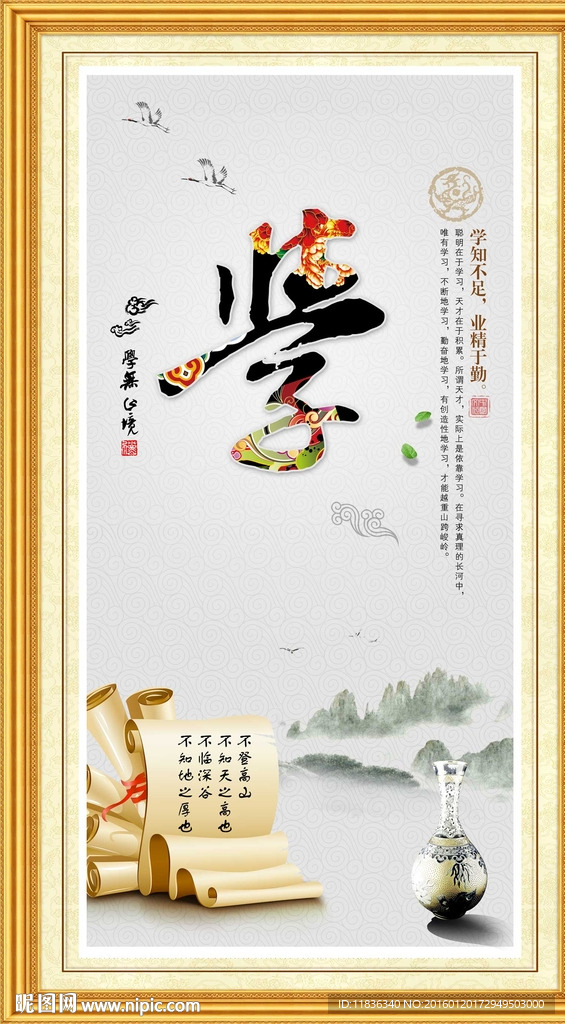 学
学知不足，业精于勤。
聪明在于学习，天才在于积累。所谓天才，实际上是依靠学习。在寻求真理的长河中，
唯有学习，不断地学习，勤奋地学习，有创造性地学习，才能越重山跨峻岭。
學無止境
不登高山
不知天之高也
不临深谷
不知地之厚也
昵图网 www.nipic.com
ID:11836340 NO:20160120172949503000